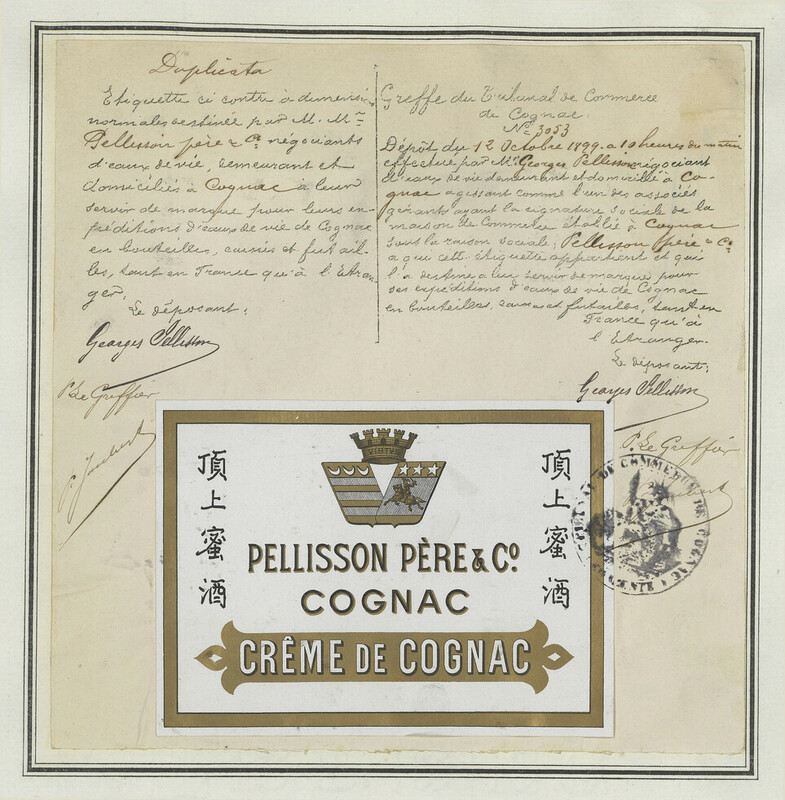 Duplicata
Etiquette ci contre à dimension
normale destinée par M. Mrs
Pellisson père & Co négociants
d'eaux de vie, demeurant et
domiciliés à Cognac à leur
servir de marque pour leurs ex-
péditions d'eaux de vie de Cognac
en bouteilles, caisses et futail-
les, tant en France qu'à l'Etran-
ger.
Le déposant:
Georges Pellisson
P. Le Greffier
P. Joubert
Greffe du Tribunal de Commerce
de Cognac.
No 3053
Dépôt du 12 Octobre 1899 à 10 heures du matin
effectué par Mr Georges Pellisson négociant
d'eaux de vie demeurant et domicilié à Co-
gnac agissant comme l'un des associés
gérants ayant la signature sociale de la
maison de Commerce établie à Cognac
sous la raison sociale; Pellisson père & Co
a qui cette étiquette appartient et qui
l'a destinée a lui servir de marque pour
ses expéditions d'eaux de vie de Cognac
en bouteilles, caisses et futailles, tant en
France qu'à
l'Etranger.
Le déposant:
Georges Pellisson
P. Le Greffier
Joubert
TRIBUNAL DE COMMERCE DE COGNAC
頂上蜜酒
頂上蜜酒
PELLISSON PÈRE & Co.
COGNAC
CRÊME DE COGNAC